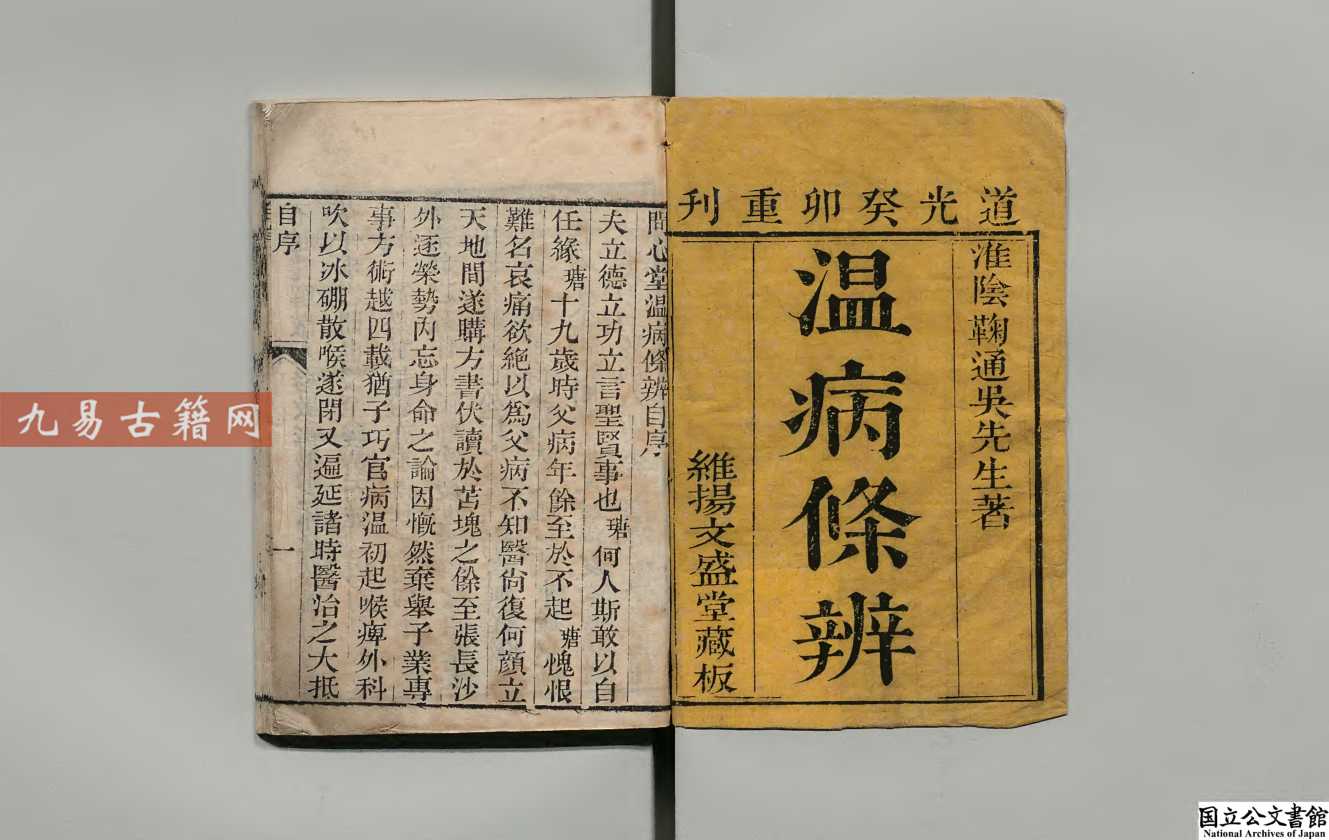 道光癸卯重刊
淮陰鞠通吳先生著
温病條辨
維揚文盛堂藏板
問心堂温病條辨自序
夫立德立功立言聖賢事也瑭何人斯敢以自
任緣瑭十九歲時父病年餘至於不起瑭愧恨
難名哀痛欲絶以爲父病不知醫尙復何顔立
天地間遂購方書伏讀於苫塊之餘至張長沙
外逐榮勢內忘身命之論因慨然棄舉子業專
事方術越四載猶子巧官病温初起喉痺外科
吹以冰硼散喉遂閉又遍延諸時醫治之大抵
自序
一
九易古籍网
国立公文書館
National Archives of Japan